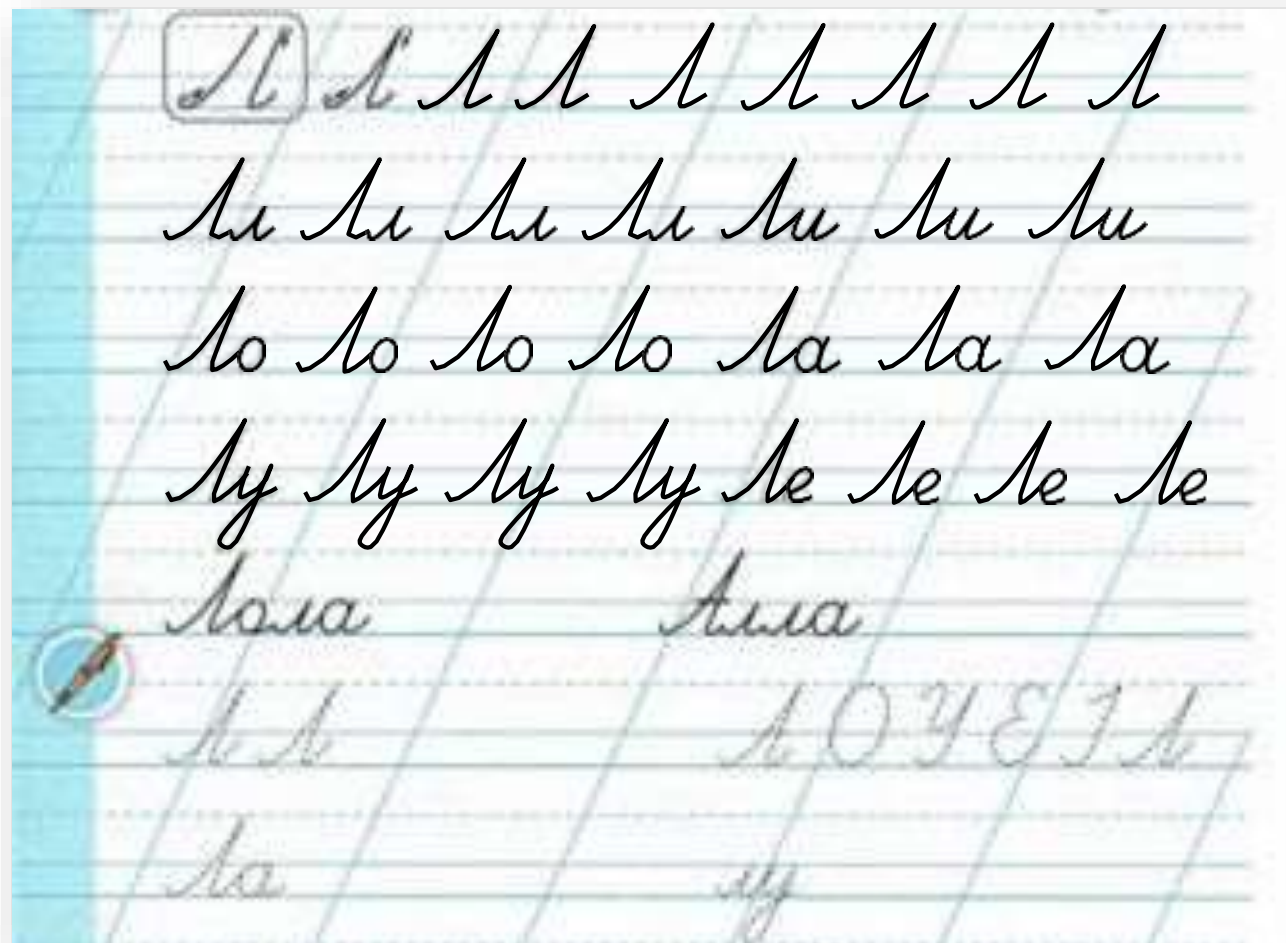 Л Л Л Л Л Л Л Л Л
Лл Лл Лл Лл Ли Ли Ли
Ло Ло Ло Ло Ла Ла Ла
Лу Лу Лу Лу Ле Ле Ле Ле
Лола Алла
Л Л Л О У Е І Л
Ла лу